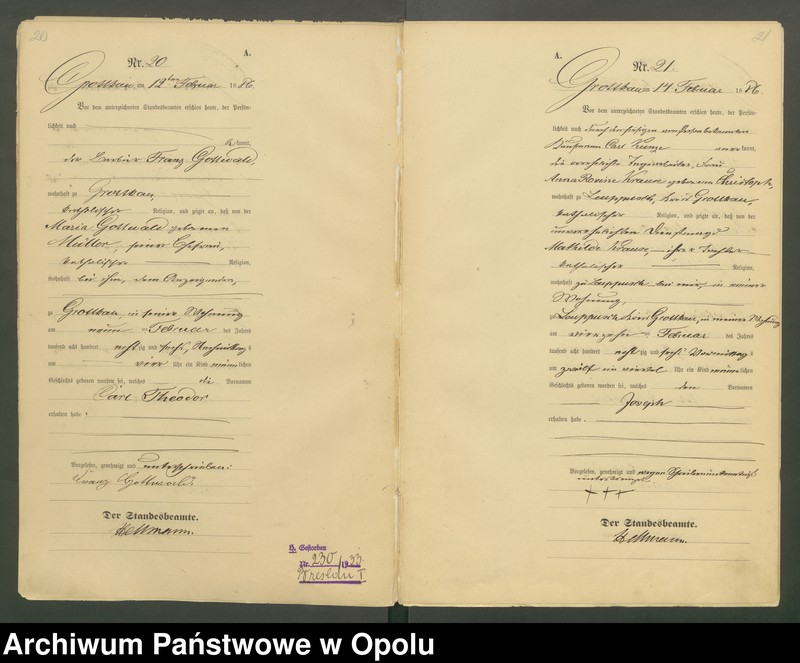 20
A.
Nr. 20
Grottkau am 12ten Februar 1886.
Vor dem unterzeichneten Standesbeamten erschien heute, der Persön-
lichkeit nach
kannt,
der Barbier Franz Gottwald,
wohnhaft zu Grottkau,
katholischer Religion, und zeigte an, daß von der
Maria Gottwald geborenen
Müller, seiner Ehefrau,
katholischer Religion,
wohnhaft bei ihm, dem Anzeigenden,
zu Grottkau in seiner Wohnung
am neun Februar des Jahres
tausend acht hundert achtzig und sechs, Nachmittags
um vier Uhr ein Kind männlichen
Geschlechts geboren worden sei, welches die Vornamen
Carl Theodor
erhalten habe.
Vorgelesen, genehmigt und unterschrieben:
Franz Gottwald.
Der Standesbeamte.
Hellmann.
H. Gestorben
Nr. 230/1933
Breslau I
21
A.
Nr. 21.
Grottkau am 14 Februar 1886.
Vor dem unterzeichneten Standesbeamten erschien heute, der Persön-
lichkeit nach durch den
Kaufmann Carl kannt,
die verehelichte Frau
Anna Rosine Krause geborene Christoph,
wohnhaft zu Kreis Grottkau,
katholischer Religion, und zeigte an, daß von der
unverehelichten
Mathilde Krause, ihrer Tochter
katholischer Religion,
wohnhaft zu bei mir, in meiner
Wohnung,
zu Kreis Grottkau, in meiner Wohnung
am vierzehn Februar des Jahres
tausend acht hundert achtzig und sechs Vormittags
um Uhr ein Kind männlichen
Geschlechts geboren worden sei, welches den Vornamen
Joseph
erhalten habe.
Vorgelesen, genehmigt und wegen
+++
Der Standesbeamte.
Hellmann.
Archiwum Państwowe w Opolu